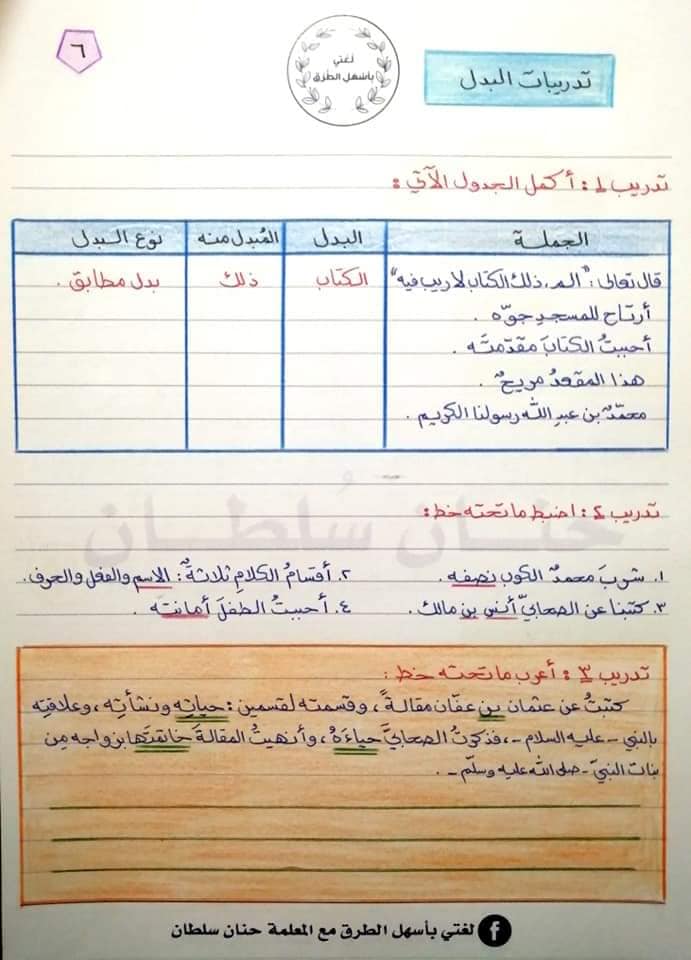 ٦
لغتي
بأسهل الطرق
تدريبات البدل
تدريب ١: أكمل الجدول الآتي:
الجملة البدل المُبدل منه نوع البدل
قال تعالى: "الم، ذلك الكتاب لا ريب فيه" الكتاب ذلك بدل مطابق.
أرتاح للمسجدِ جوّه.
أحببتُ الكتابَ مقدّمتَه.
هذا المقعدُ مريحٌ.
محمّدٌ بن عبدِ اللّه رسولنا الكريم.
حنان سُلطان
تدريب ٢: اضبط ما تحته خط:
١. شربَ محمدٌ الكوب نصفه. ٢. أقسامُ الكلامِ ثلاثةٌ: الاسم والفعل والحرف.
٣. كتبنا عن الصحابيّ أنس بن مالك. ٤. أحببتُ الطفلَ أمانته.
تدريب ٣: أعرب ما تحته خط:
كتبتُ عن عثمان بن عفّان مقالةً، وقسمته لقسمين: حياتِه ونشأتِه، وعلاقتِه
بالنبي - عليه السلام -، فذكرتُ الصحابيَّ حياءَهُ، وأنهيتُ المقالةَ خاتمتَها بزواجه من
بنات النبيّ - صلى اللّه عليه وسلّم -.
لغتي بأسهل الطرق مع المعلمة حنان سلطان